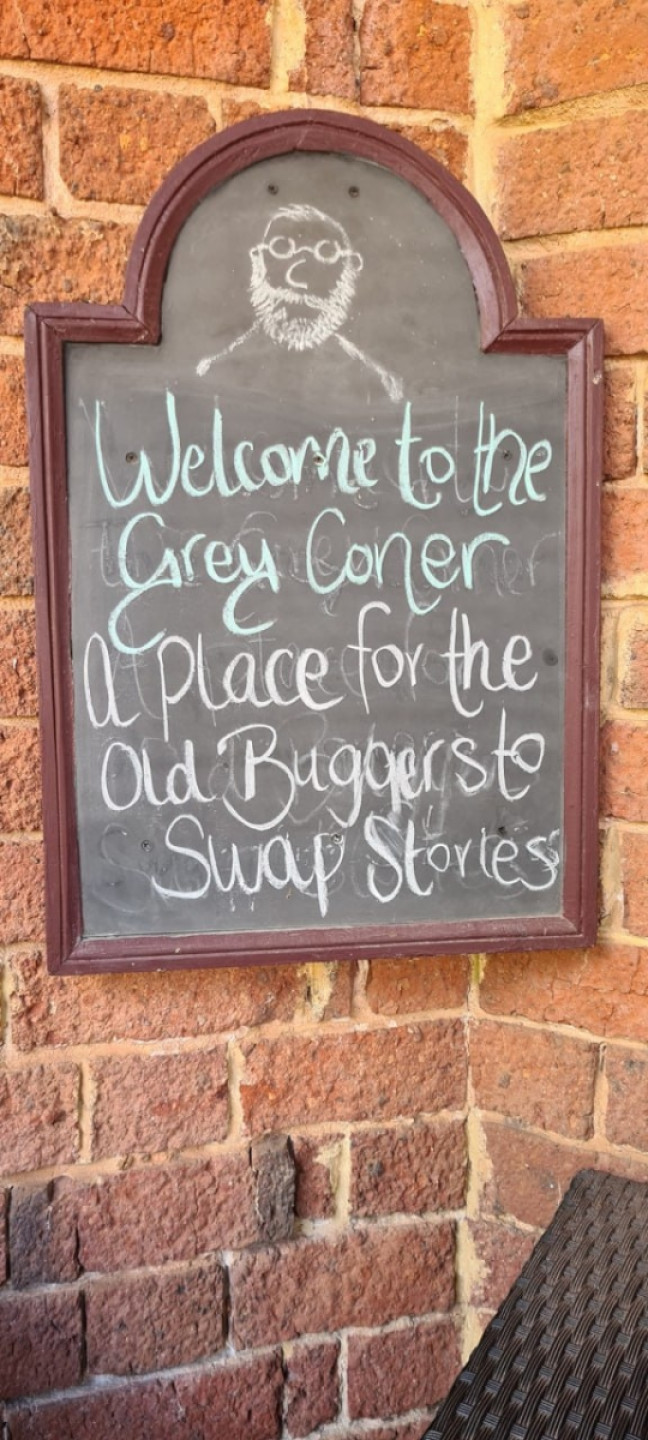 Welcome to the
Grey Coner
A Place for the
Old Buggers to
Swap Stories